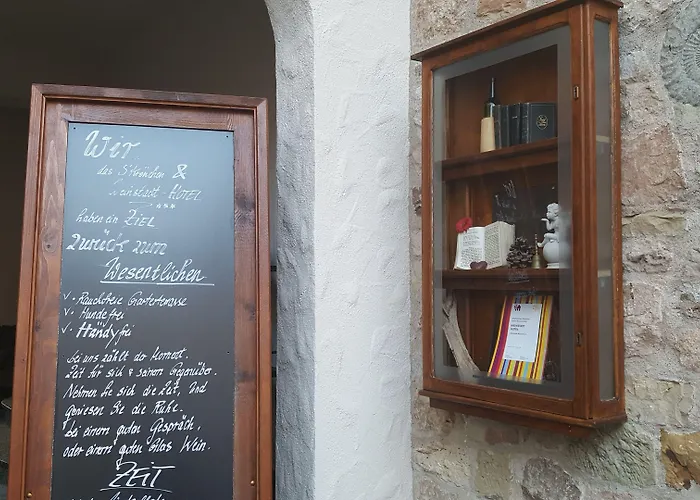 Wir
das Störchen &
Weinstadt-HOTEL
haben ein ZIEL
zurück zum
Wesentlichen
✓ Rauchfreie Gartenterrasse
✓ Hundefrei
✓ Handyfrei
Bei uns zählt der Moment.
Zeit für sich & seinem Gegenüber.
Nehmen Sie sich die Zeit, und
geniesen Sie die Ruhe.
bei einem guten Gespräch,
oder einem guten Glas Wein.
ZEIT